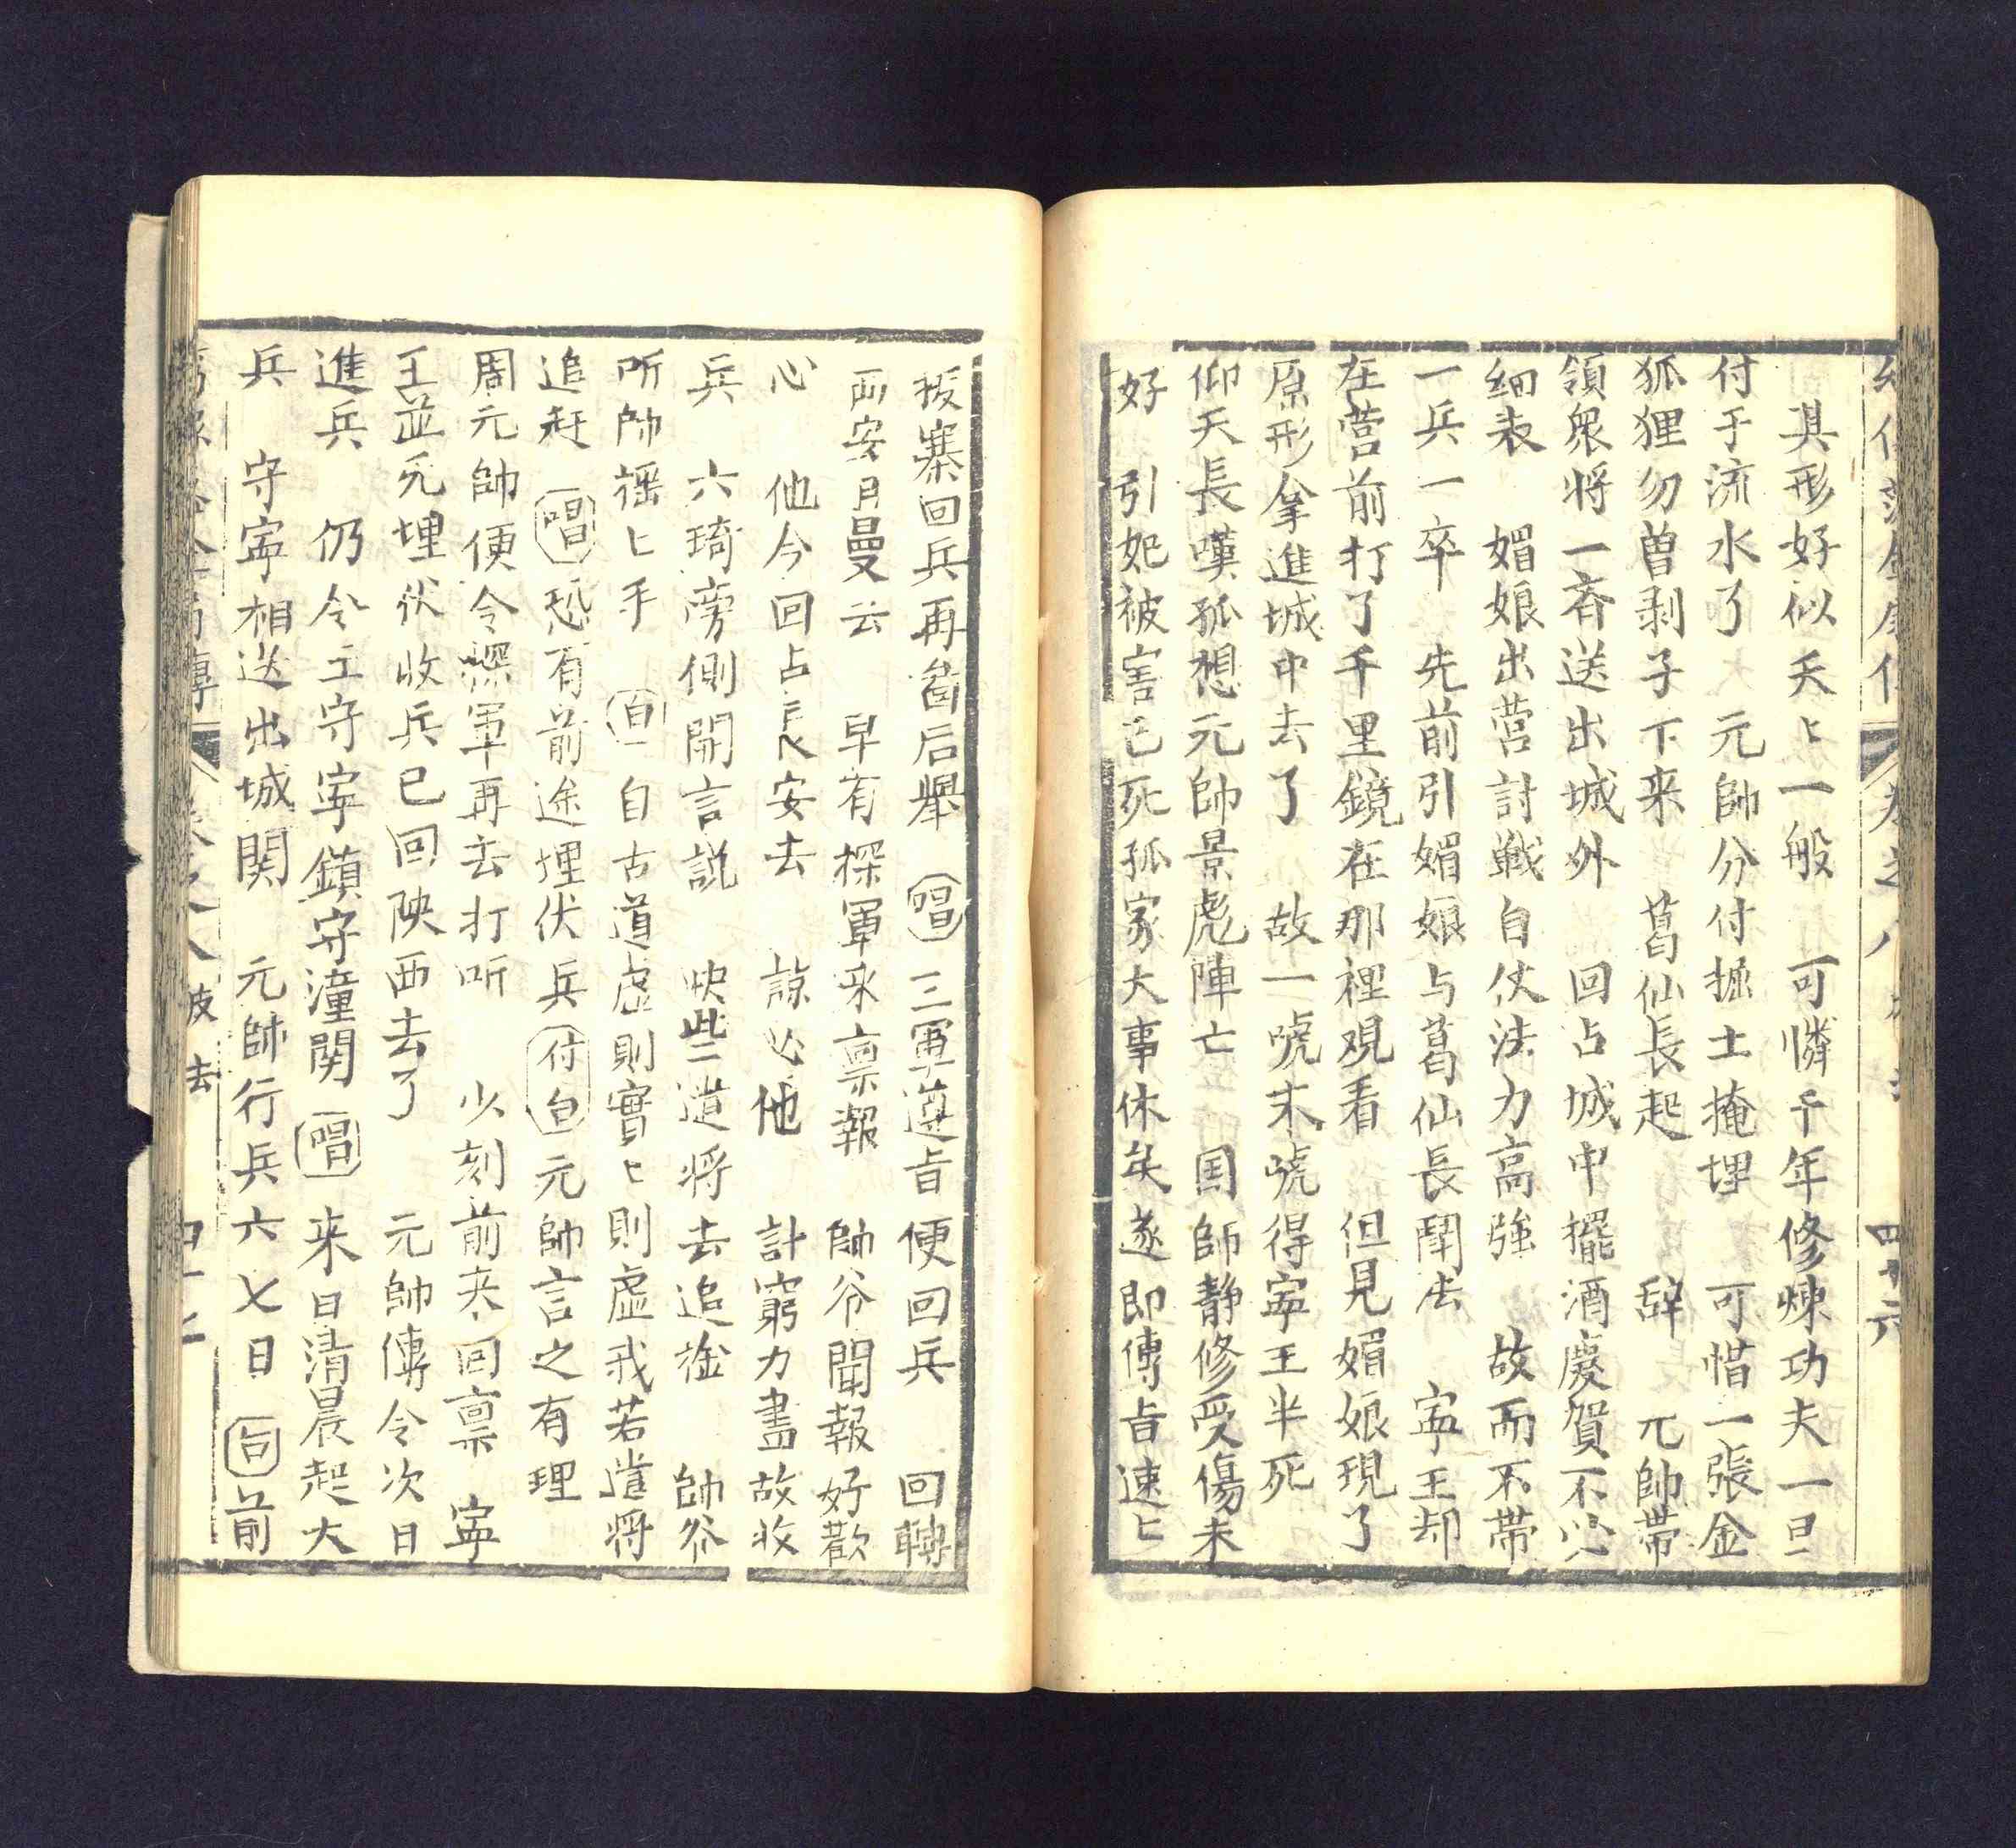 其形好似天上一般 可憐千年修煉功夫一旦
付于流水了 元帥分付掘土掩埋 可惜一張金
狐狸勿曽剥子下来 葛仙長起 辞 元帥帶
領衆将一斉送出城外 回占城中擺酒慶賀不必
細表 媚娘出营討戦自仗法力高強 故而不帶
一兵一卒 先前引媚娘与葛仙長鬦法 寕王却
在营前打了千里鏡在那裡观看 但見媚娘現了
原形拿進城中去了 故一唬末唬得寕王半死
仰天長嘆孤想元帥景彪陣亡 国師静修受傷未
好 引妃被害已死孤家大事休矣遂即傳旨速匕
四十六
拔寨回兵再啚后舉 唱 三軍遵旨便回兵 回轉
西安月曼云 早有探軍来禀報 帥爷聞報好歡
心 他今回占長安去 諒必他 計窮力盡故收
兵 六琦旁側開言説 快些遣将去追擒 帥爷
所帥摇匕手 白 自古道虚則實匕則虚我若遣将
追赶 唱 恐有前途埋伏兵 付白 元帥言之有理
周元帥便令探軍再去打听 少刻前来回禀 寕
王並死埋伏收兵已回陕西去了 元帥傳令次日
進兵 仍令王守寕鎮守潼関 唱 来日清晨起大
兵 守寕相送出城関 元帥行兵六七日 白 前